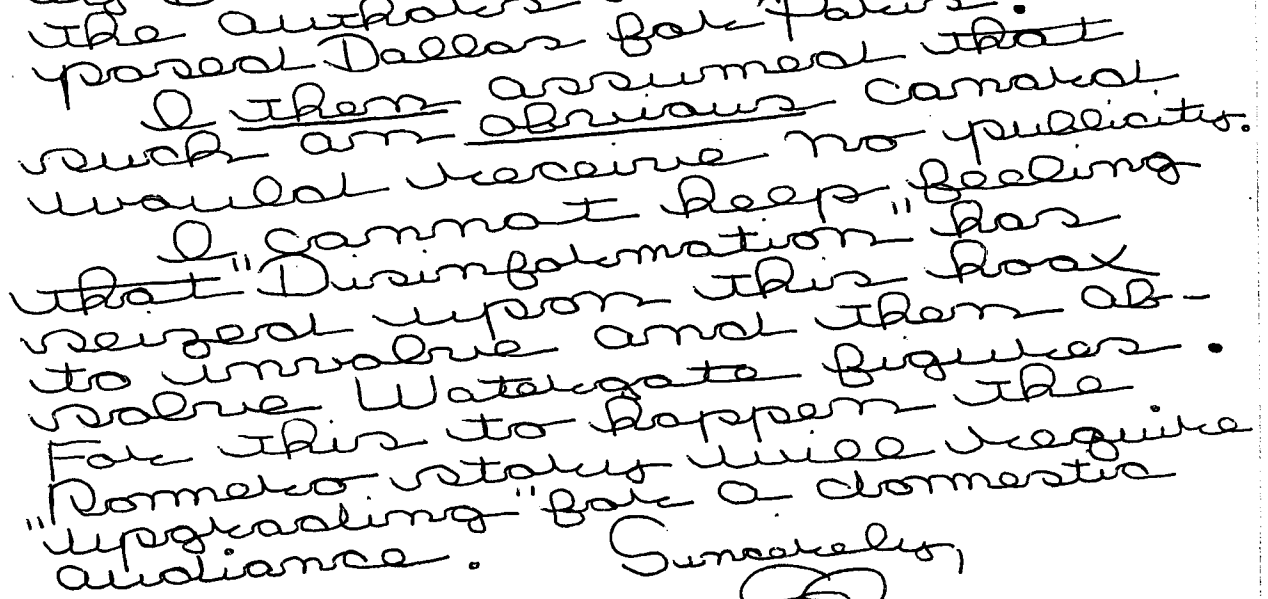 the author's
posed Dallas for Paris.
I then assumed that
such an obvious canard
would receive no publicity.
I cannot keep feeling
that "Disinformation" has
seized upon this hoax
to involve and then ab-
solve Watergate figures.
For this to happen the
Romero story will require
"upgrading" for a domestic
audiance.
Sincerely,